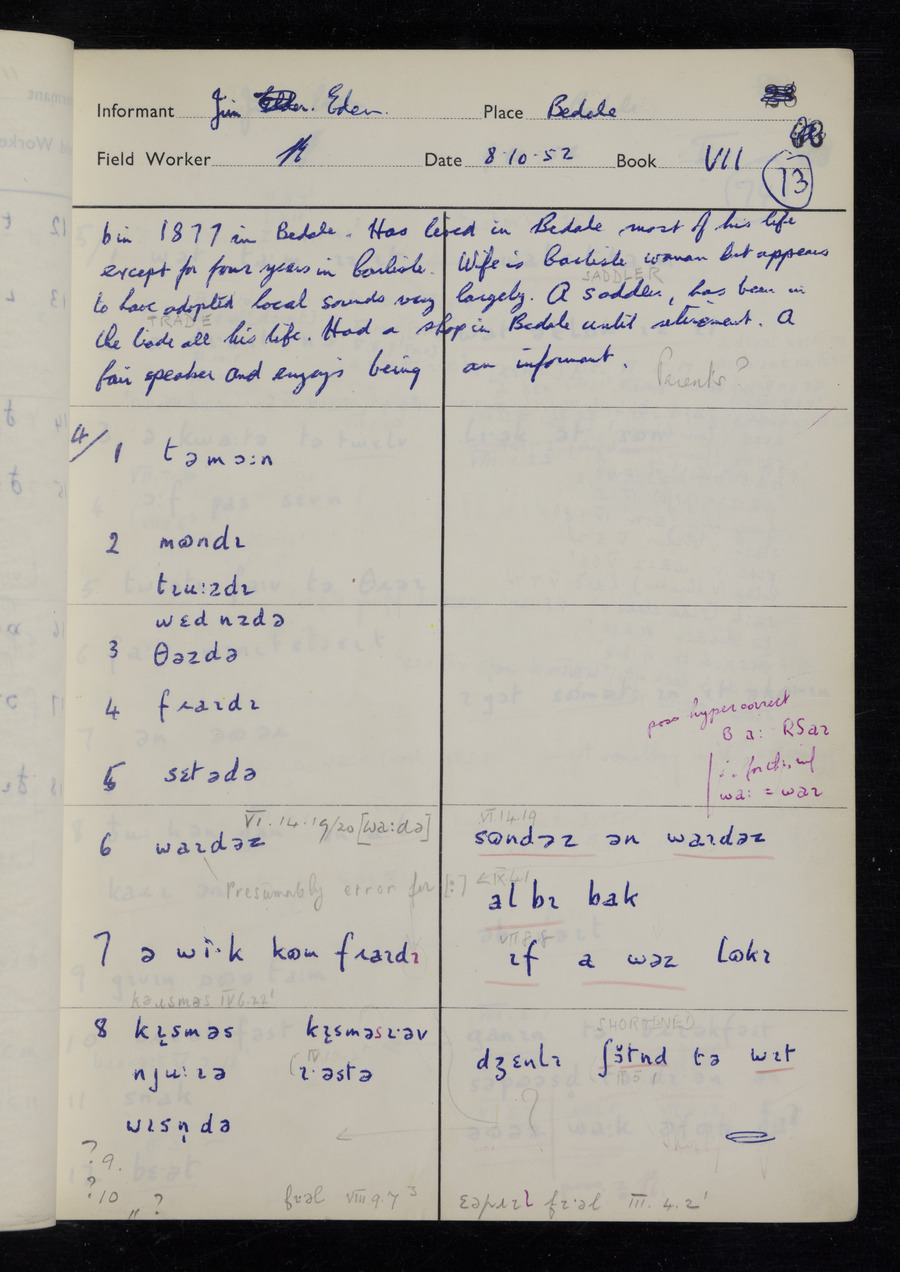 Informant Jim Eden. Place Bedale
Field Worker Date 8.10.52 Book VII
13
b in 1877 in Bedale. Has lived in Bedale most of his life
except for four years in Carlisle. Wife is Carlisle woman but appears
SADDLER
to have adopted local sounds very largely. A saddler, has been in
TRADE
the trade all his life. Had a shop in Bedale until retirement. A
fair speaker and enjoys being an informant.
Parents?
4/
1 təmɔːn
2 mɷndɪ
tɪuːzdɪ
wɛdnzdə
3 θəzdə
4 fɹaɪdɪ
poss hypercorrect
B aː RS aɪ
5 sɛtədə
waː = waɪ
VI.14.19/20 [waːdə] VI.14.19
6 waɪdəz sɷndəz ən waɪdəz
Presumably error for [ː] IX.4.1
al bɪ bak
VII.8.8
7 ə wiˑk kɷm fɹaɪdɪ ɪf a wəz lɷkɪ
IV.6.22'
SHORTENED
8 kɹɪsməs kɹɪsməsɪˑəv dʒɛnlɪ ʃɔ̆tnd tə wɪt
njuːɪə ɪˑəstə
wɪsn̩də
?
? 9.
? 10 " ?
fɪəl VIII 9.7³ fɪˑəl III.4.2'